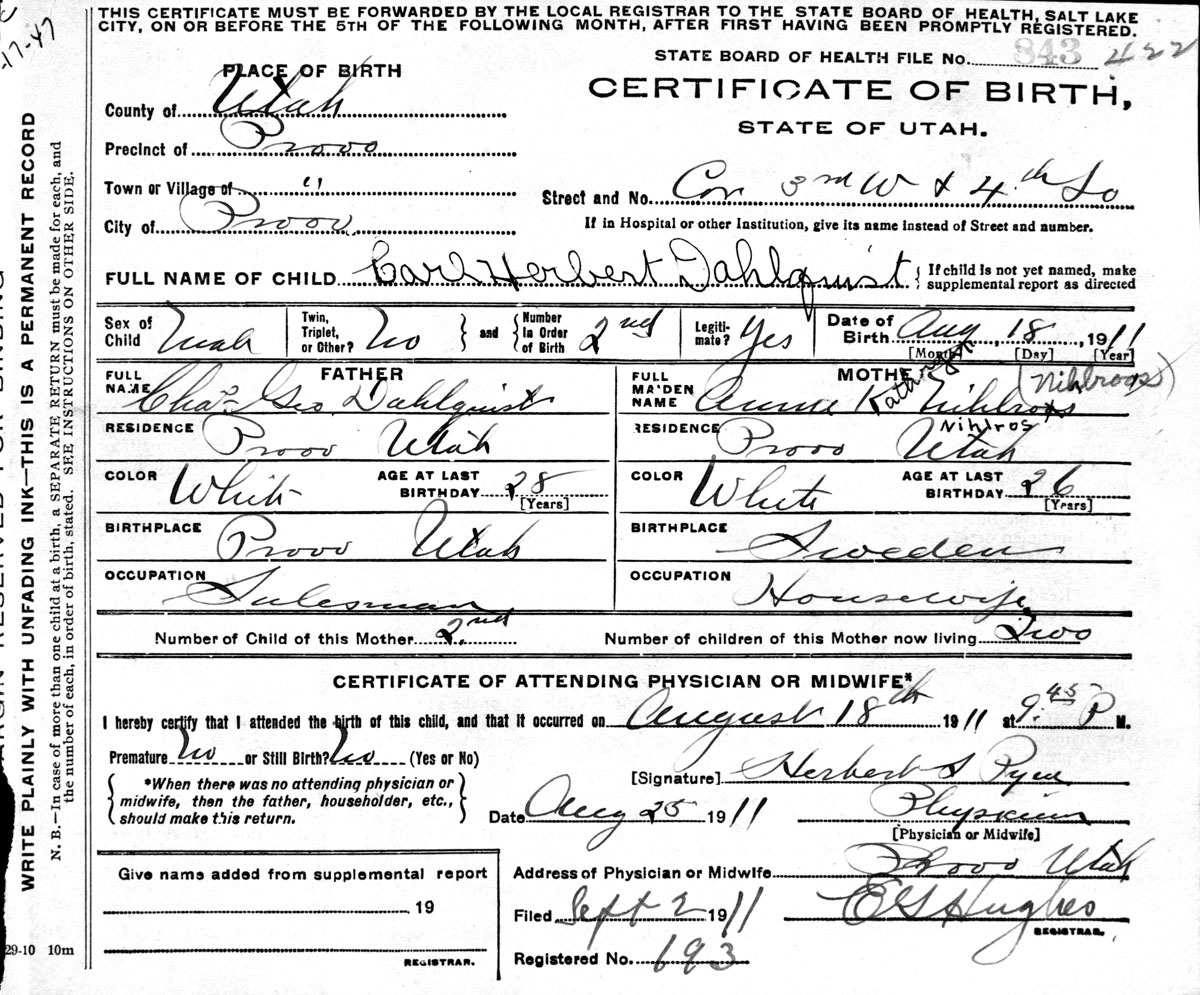 THIS CERTIFICATE MUST BE FORWARDED BY THE LOCAL REGISTRAR TO THE STATE BOARD OF HEALTH, SALT LAKE
CITY, ON OR BEFORE THE 5TH OF THE FOLLOWING MONTH, AFTER FIRST HAVING BEEN PROMPTLY REGISTERED.
-17-47
STATE BOARD OF HEALTH FILE No. 843 422
PLACE OF BIRTH
CERTIFICATE OF BIRTH,
STATE OF UTAH.
County of Utah
Precinct of Provo
Town or Village of "
City of Provo
Street and No. Cor 3rd W & 4th So
If in Hospital or other Institution, give its name instead of Street and number.
FULL NAME OF CHILD Carl Herbert Dahlquist { If child is not yet named, make
supplemental report as directed
Sex of Child Male Twin, Triplet, or Other? No } and { Number In Order of Birth 2nd Legiti-mate? Yes Date of Birth Aug 18, 1911
[Month] [Day] [Year]
FATHER
FULL NAME Chas Geo Dahlquist
RESIDENCE Provo Utah
COLOR White AGE AT LAST BIRTHDAY 28 [Years]
BIRTHPLACE Provo Utah
OCCUPATION Salesman
MOTHE (Nihlroos)
FULL MAIDEN NAME Anna K Nihlros
Nihlros
RESIDENCE Provo Utah
COLOR White AGE AT LAST BIRTHDAY 26 [Years]
BIRTHPLACE Sweden
OCCUPATION Housewife
Number of Child of this Mother 2nd Number of children of this Mother now living Two
CERTIFICATE OF ATTENDING PHYSICIAN OR MIDWIFE*
I hereby certify that I attended the birth of this child, and that it occurred on August 18th 1911 at 9:45 P M.
Premature No or Still Birth? No (Yes or No)
*When there was no attending physician or
midwife, then the father, householder, etc.,
should make this return.
[Signature] Herbert S Pyne
Date Aug 25 1911 Physician
[Physician or Midwife]
Give name added from supplemental report
, 19
REGISTRAR.
Address of Physician or Midwife Provo Utah
Filed Sept 2 1911 E G Hughes
REGISTRAR.
Registered No. 193
29-10 10m
WRITE PLAINLY WITH UNFADING INK—THIS IS A PERMANENT RECORD
N. B.—In case of more than one child at a birth, a SEPARATE RETURN must be made for each, and
the number of each, in order of birth, stated. SEE INSTRUCTIONS ON OTHER SIDE.